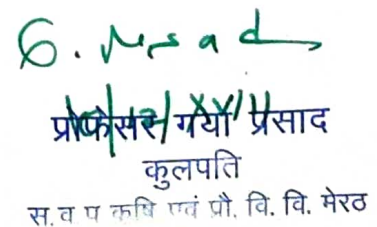 G. Prasad
प्रोफेसर गया प्रसाद
कुलपति
स. व प कृषि एवं प्रौ. वि. वि. मेरठ